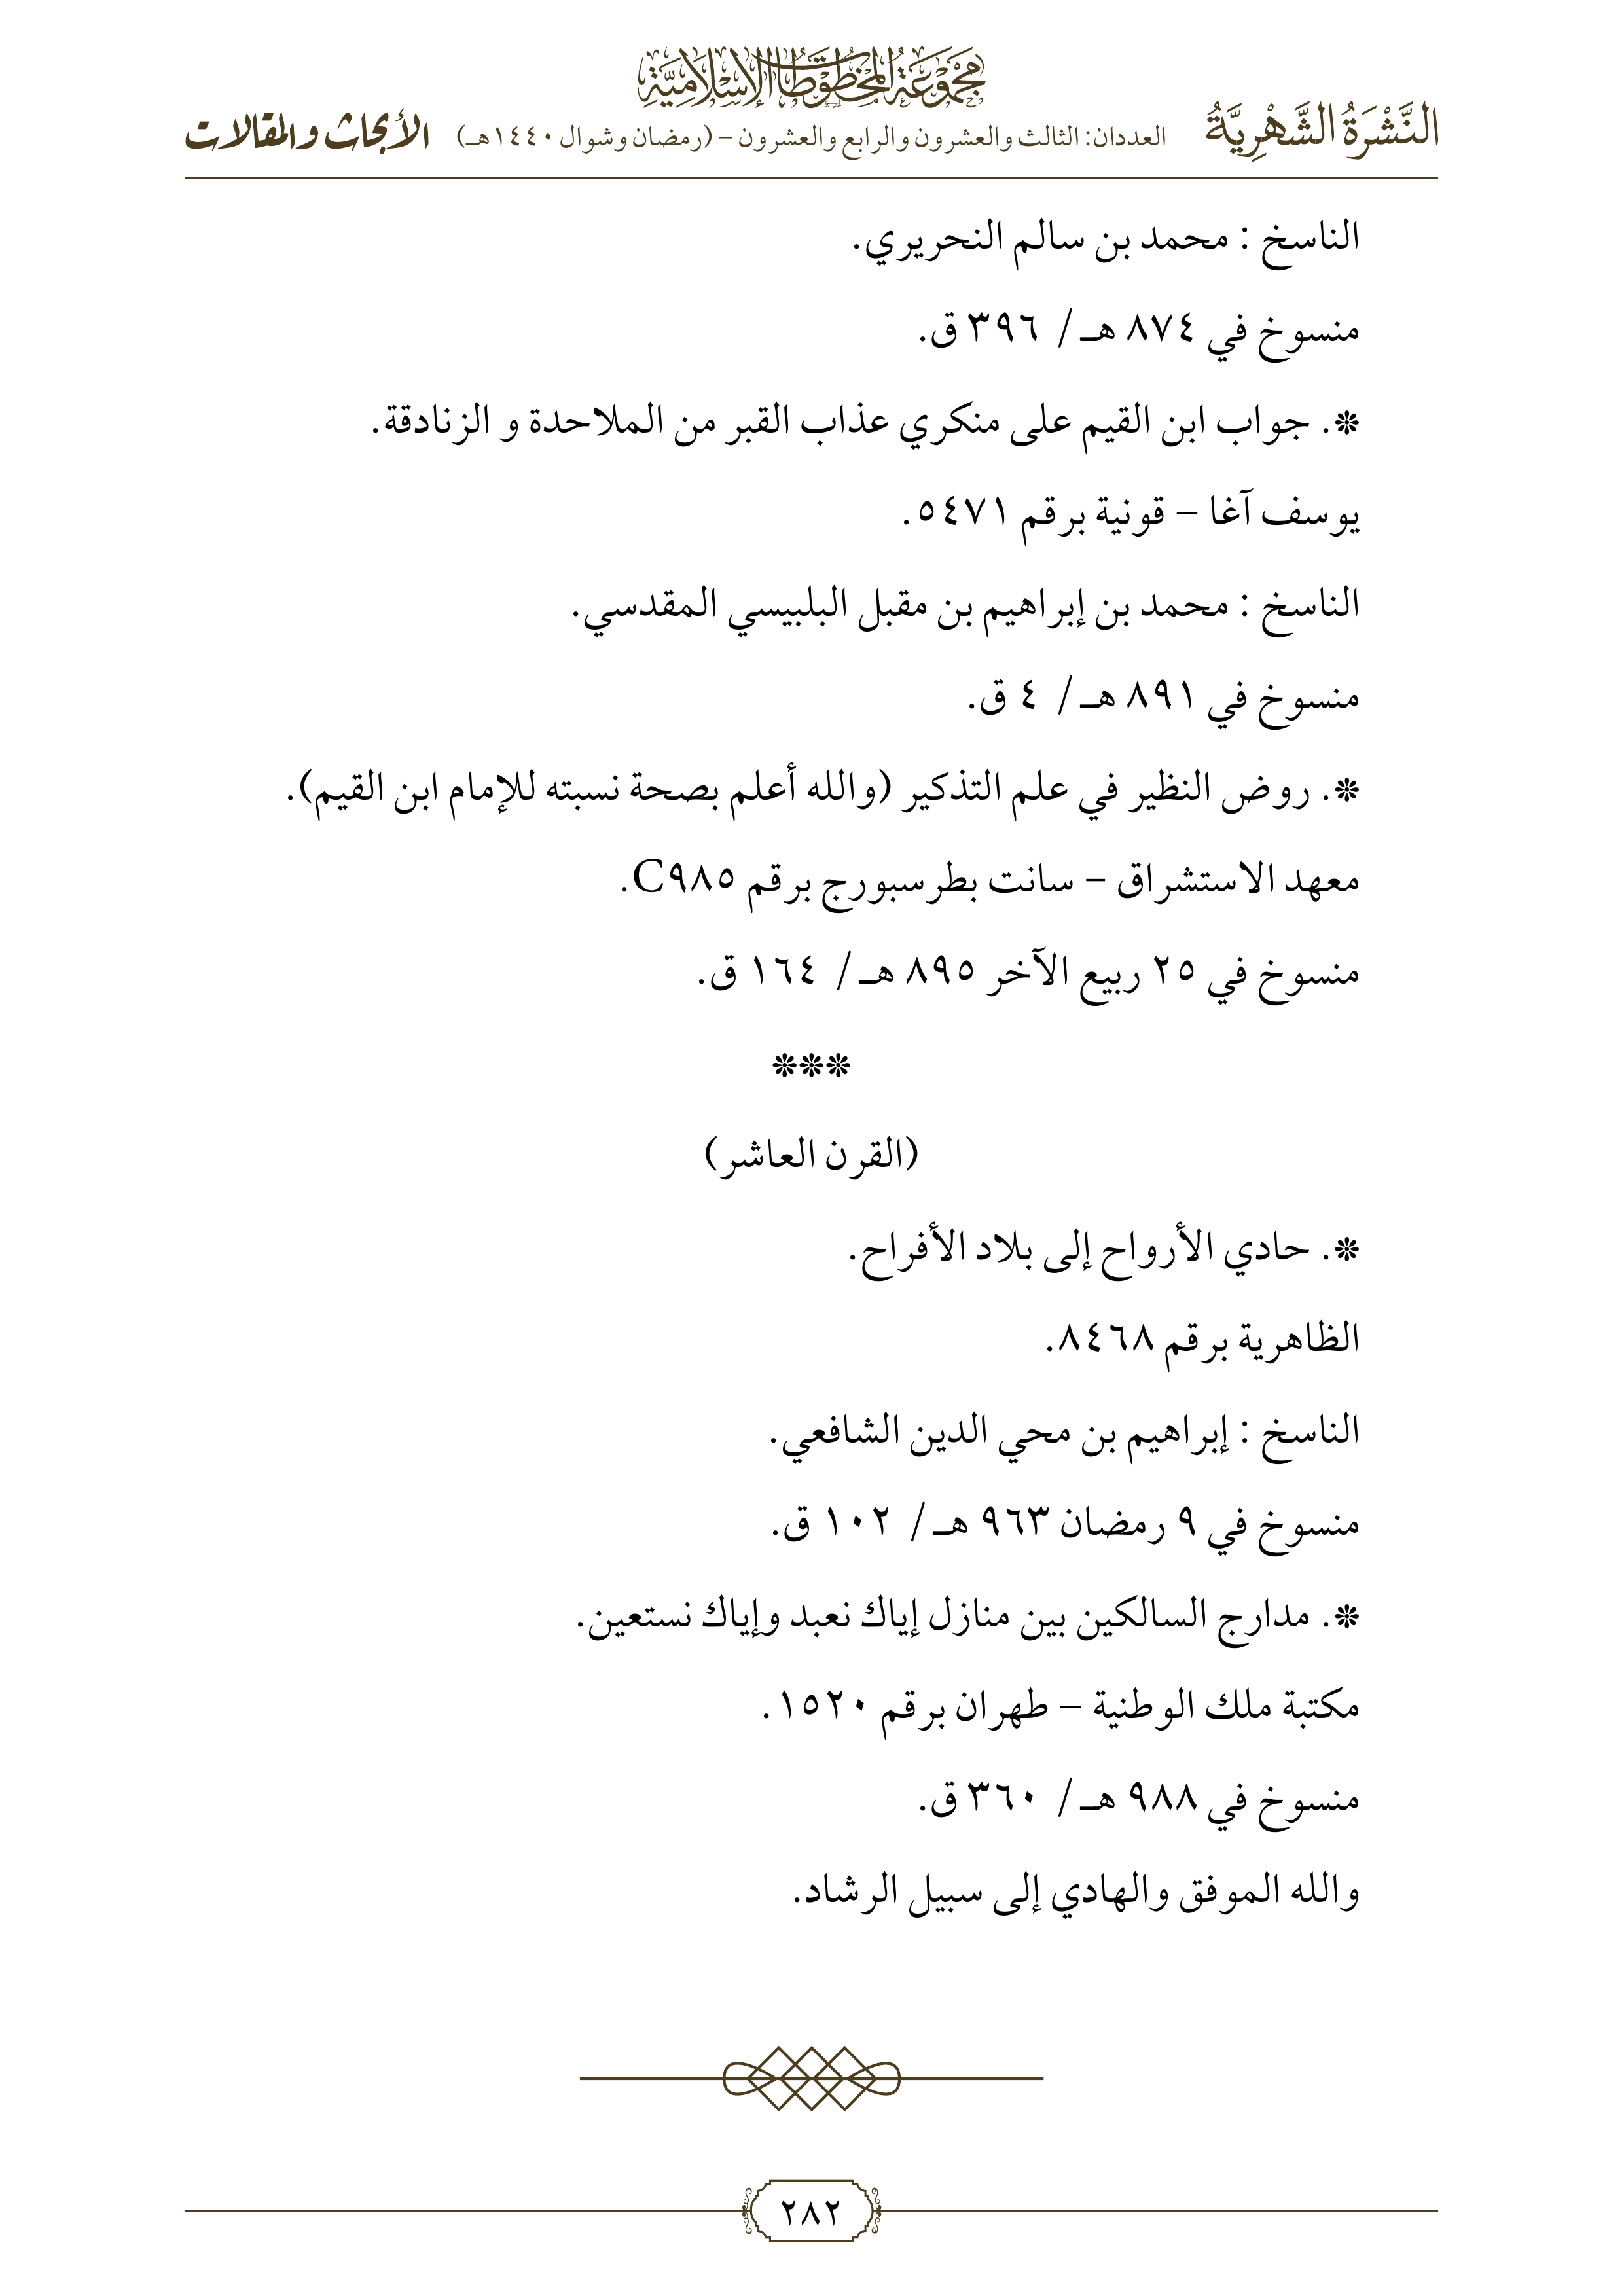 مَجْمُوعَةُ المَخْطُوطَاتِ الإِسْلَامِيَّةِ
النَّشْرَةُ الشَّهْرِيَّةُ العددان: الثالث والعشرون والرابع والعشرون – (رمضان وشوال ١٤٤٠هـ) الأبحاث والمقالات
الناسخ : محمد بن سالم النحريري.
منسوخ في ٨٧٤ هـ/ ٣٩٦ ق.
❊. جواب ابن القيم على منكري عذاب القبر من الملاحدة و الزنادقة.
يوسف آغا – قونية برقم ٥٤٧١.
الناسخ : محمد بن إبراهيم بن مقبل البلبيسي المقدسي.
منسوخ في ٨٩١ هـ/ ٤ ق.
❊. روض النظير في علم التذكير (والله أعلم بصحة نسبته للإمام ابن القيم).
معهد الاستشراق – سانت بطرسبورج برقم C٩٨٥.
منسوخ في ٢٥ ربيع الآخر ٨٩٥ هـ/ ١٦٤ ق.
❊❊❊
(القرن العاشر)
❊. حادي الأرواح إلى بلاد الأفراح.
الظاهرية برقم ٨٤٦٨.
الناسخ : إبراهيم بن محي الدين الشافعي.
منسوخ في ٩ رمضان ٩٦٣ هـ/ ١٠٢ ق.
❊. مدارج السالكين بين منازل إياك نعبد وإياك نستعين.
مكتبة ملك الوطنية – طهران برقم ١٥٢٠.
منسوخ في ٩٨٨ هـ/ ٣٦٠ ق.
والله الموفق والهادي إلى سبيل الرشاد.
٢٨٢